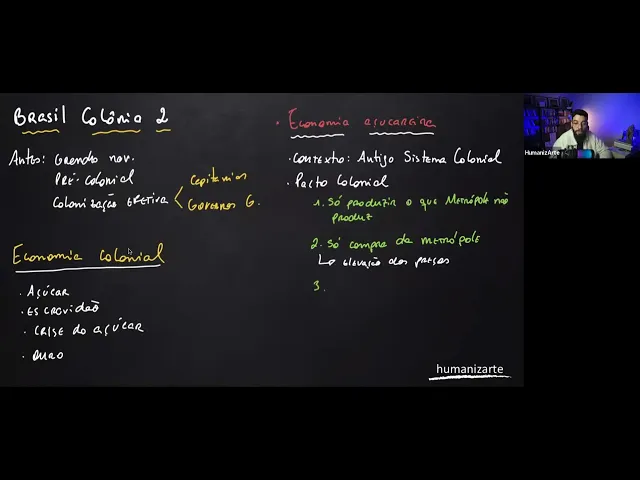 Brasil Colônia 2
Antes: Grande nav.
PRÉ-Colonial
Colonização efetiva
Capitanias
Governos G.
Economia colonial
. Açúcar
. Escravidão
. Crise do açúcar
. Ouro
. Economia açucareira
. Contexto: Antigo Sistema Colonial
. Pacto Colonial
1. Só produzir o que Metrópole não
produz
2. Só compra da metrópole
↳ elevação dos preços
3.
humanizarte
HumanizArte